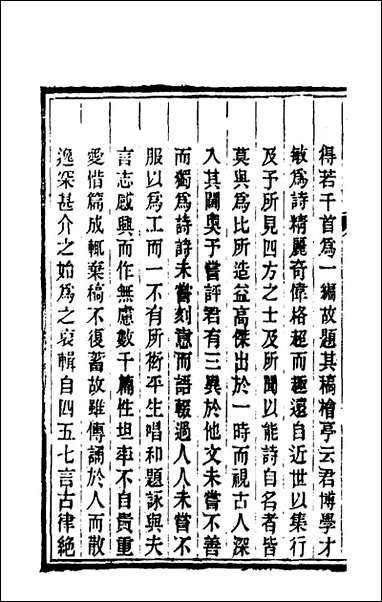 得若干首爲一編故題其稿檜亭云君博學才
敏爲詩精麗奇偉格超而趣遠自近世以集行
及予所見四方之士及所聞以能詩自名者皆
莫與爲比所造益高傑出於一時而視古人深
入其閫奥予嘗評君有三異於他文未嘗不善
而獨爲詩詩未嘗刻意而語輙過人人未嘗不
服以爲工而一不有所衒平生唱和題詠與夫
言志感興而作無慮數千篇性坦率不自貴重
愛惜篇成輒棄稿不復蓄故雖傳誦於人而散
逸深甚介之始爲之裒輯自四五七言古律絶